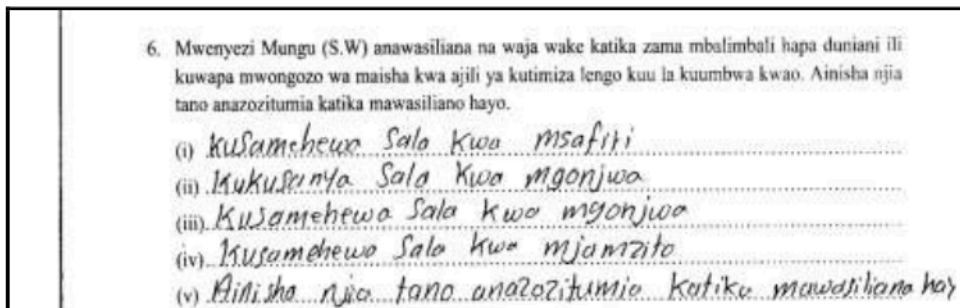 6. Mwenyezi Mungu (S.W) anawasiliana na waja wake katika zama mbalimbali hapa duniani ili
kuwapa mwongozo wa maisha kwa ajili ya kutimiza lengo kuu la kuumbwa kwao. Ainisha njia
tano anazozitumia katika mawasiliano hayo.
(i) Kusamehewa Sala kwa msafiri
(ii) Kukusanya Sala kwa mgonjwa
(iii) Kusamehewa Sala kwa mgonjwa
(iv) Kusamehewa Sala kwa mjamzito
(v) Ainisha njia tano anazozitumia katika mawasiliano hay